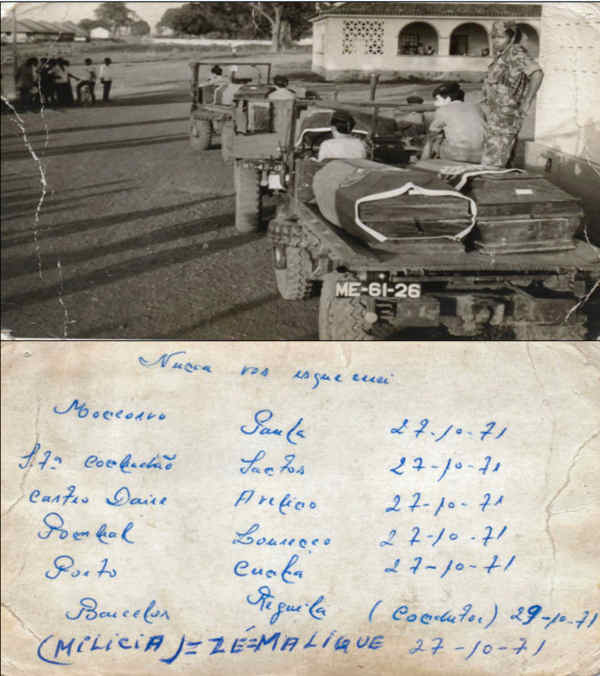 ME-61-26
Nunca vos esquecerei
Moncorvo 27-10-71
S.Tª Combadão Santos 27-10-71
Castro Daire 27-10-71
Pombal Lourenço 27-10-71
Porto Cunha 27-10-71
Barcelos Reguila (Condutor) 29-10-71
(MILICIA)=ZÉ=MALIQUE 27-10-71